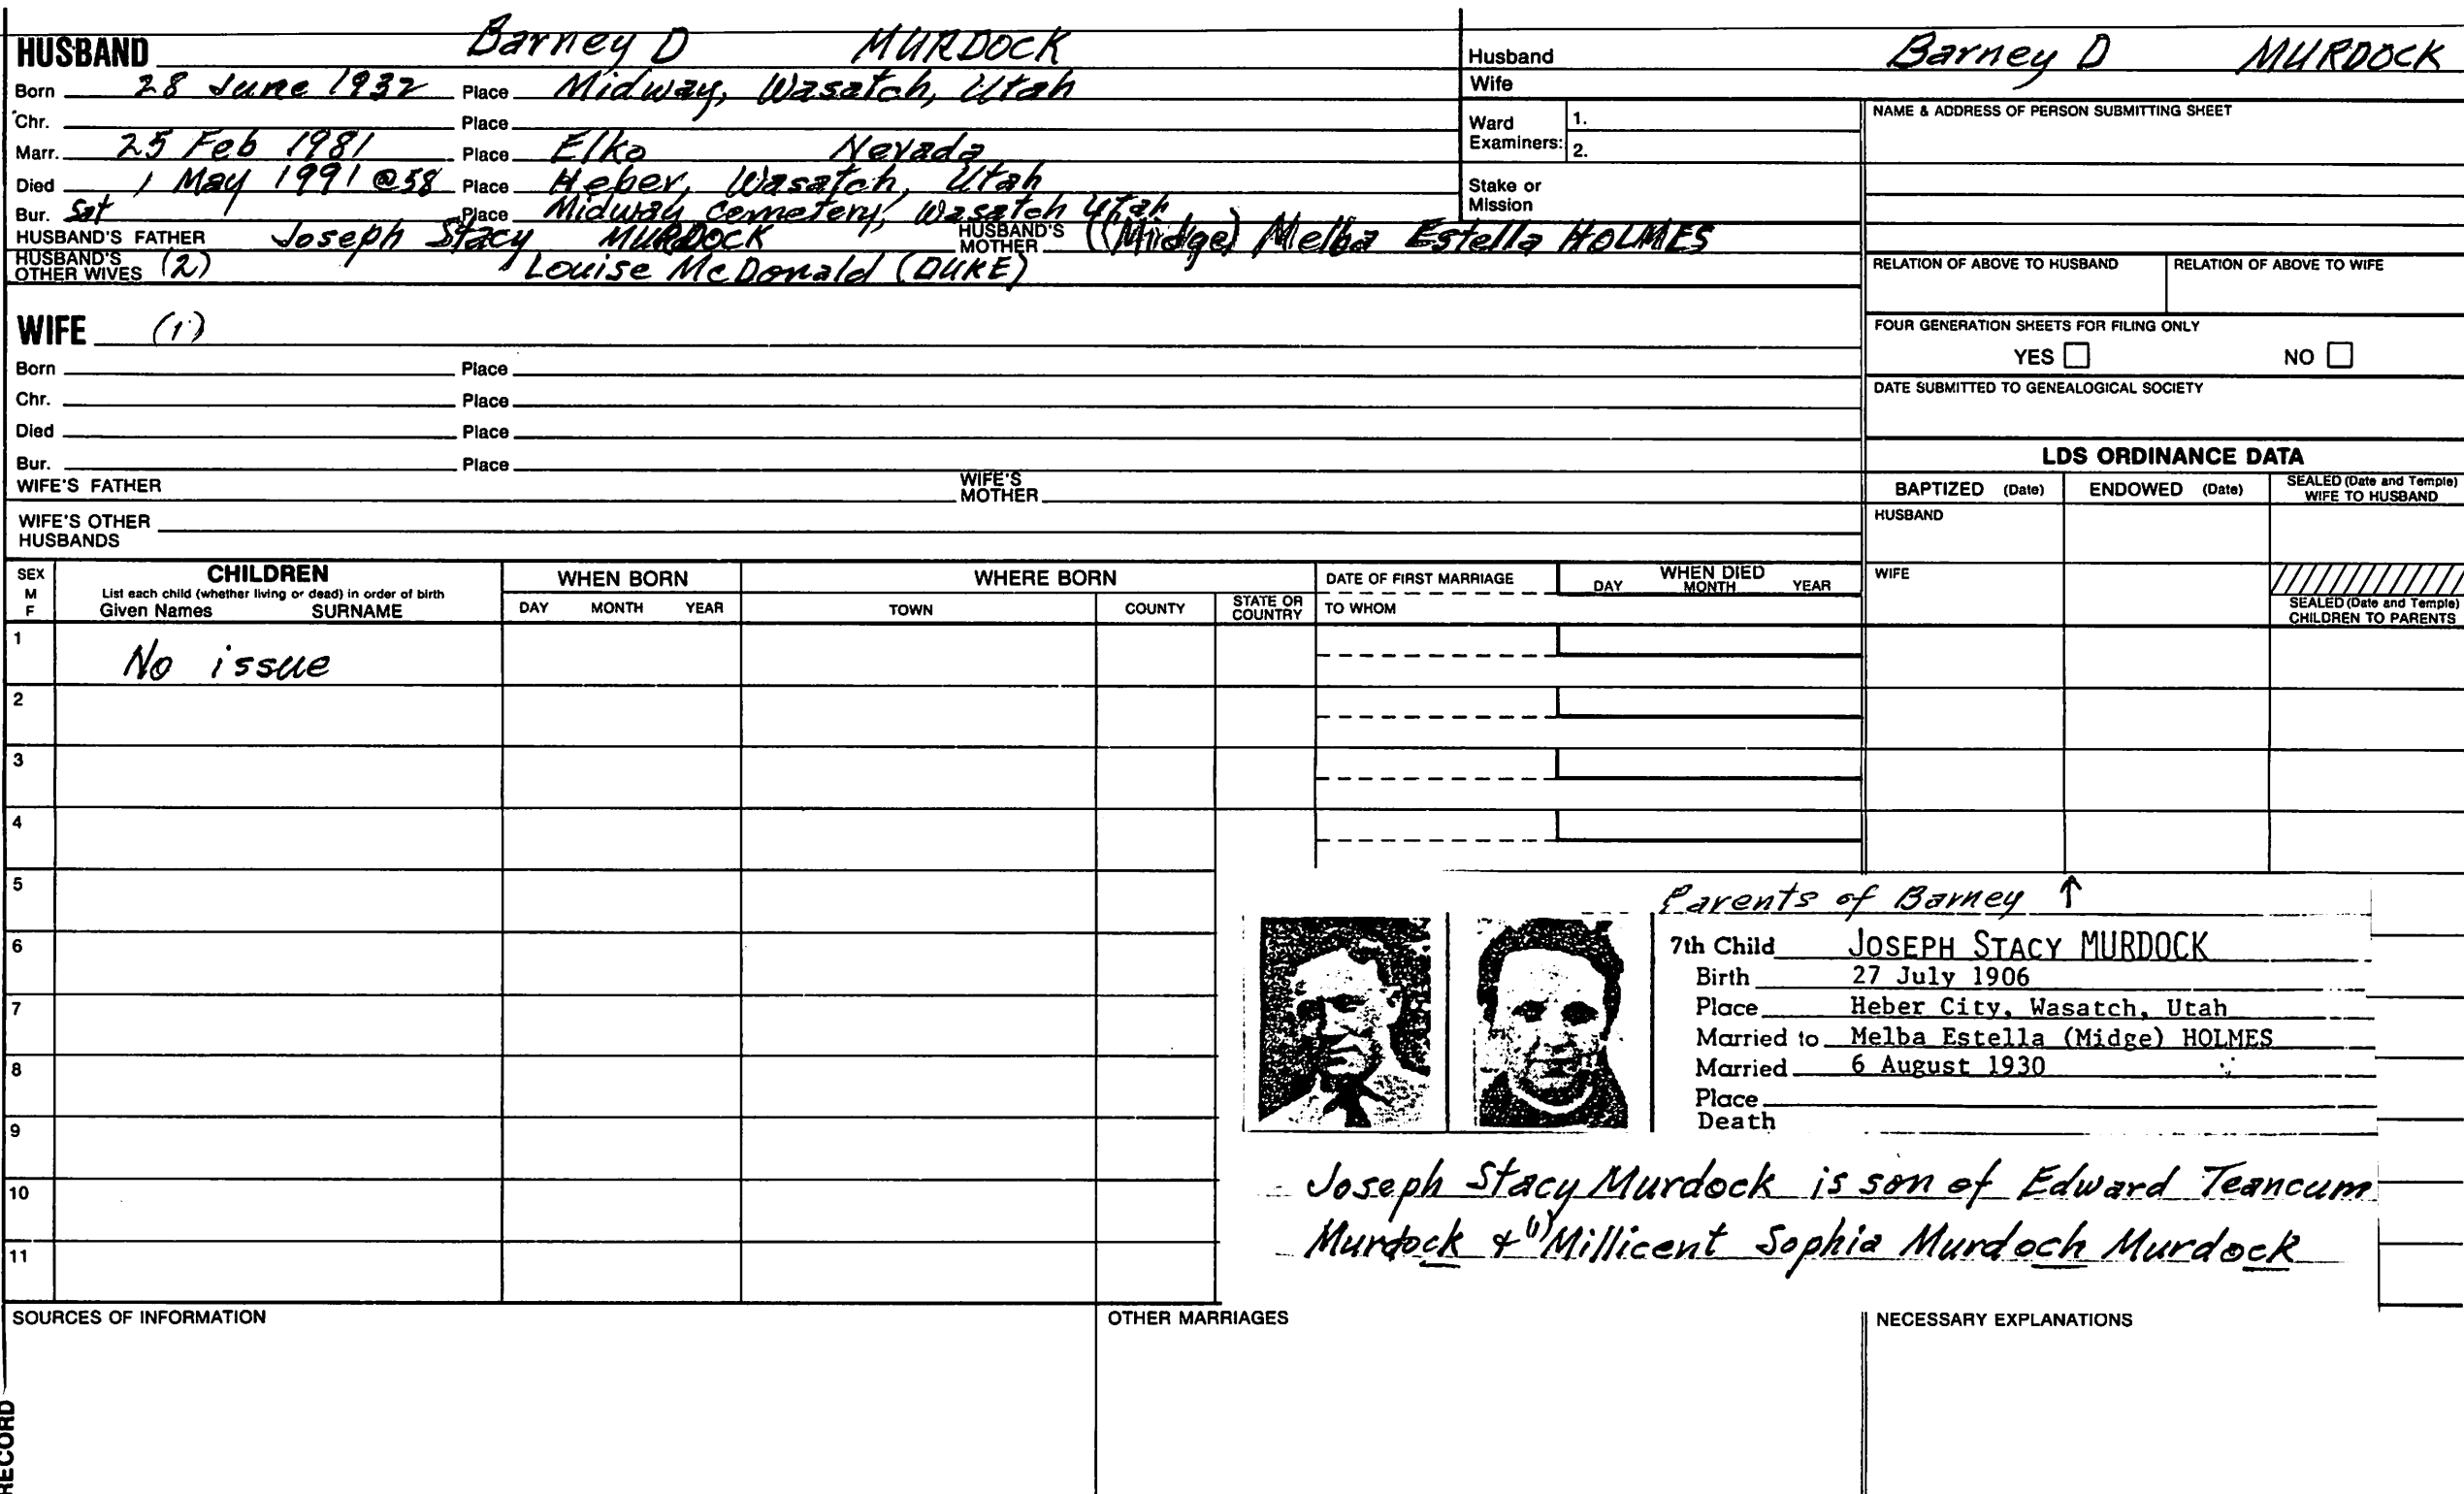 HUSBAND Barney D MURDOCK
Born 28 June 1932 Place Midway, Wasatch, Utah
Chr. Place
Marr. 25 Feb 1981 Place Elko Nevada
Died 1 May 1991 @58 Place Heber, Wasatch, Utah
Bur. Sat Place Midway Cemetery, Wasatch Utah
HUSBAND'S FATHER Joseph Stacy MURDOCK HUSBAND'S MOTHER (Midge) Melba Estella HOLMES
HUSBAND'S OTHER WIVES (2) Louise McDonald (DUKE)
WIFE (1)
Born Place
Chr. Place
Died Place
Bur. Place
WIFE'S FATHER WIFE'S MOTHER
WIFE'S OTHER HUSBANDS
Husband Barney D MURDOCK
Wife
Ward Examiners: 1.
2.
Stake or Mission
NAME & ADDRESS OF PERSON SUBMITTING SHEET
RELATION OF ABOVE TO HUSBAND RELATION OF ABOVE TO WIFE
FOUR GENERATION SHEETS FOR FILING ONLY
YES NO
DATE SUBMITTED TO GENEALOGICAL SOCIETY
LDS ORDINANCE DATA
BAPTIZED (Date) ENDOWED (Date) SEALED (Date and Temple) WIFE TO HUSBAND
HUSBAND
WIFE
SEALED (Date and Temple) CHILDREN TO PARENTS
SEX M F
CHILDREN
List each child (whether living or dead) in order of birth
Given Names SURNAME
WHEN BORN
DAY MONTH YEAR
WHERE BORN
TOWN COUNTY STATE OR COUNTRY
DATE OF FIRST MARRIAGE
TO WHOM
WHEN DIED
DAY MONTH YEAR
1 No issue
2
3
4
5
6
7
8
9
10
11
Parents of Barney ↑
7th Child JOSEPH STACY MURDOCK
Birth 27 July 1906
Place Heber City, Wasatch, Utah
Married to Melba Estella (Midge) HOLMES
Married 6 August 1930
Place
Death
Joseph Stacy Murdock is son of Edward Teancum
Murdock & (1) Millicent Sophia Murdoch Murdock
SOURCES OF INFORMATION OTHER MARRIAGES NECESSARY EXPLANATIONS
RECORD